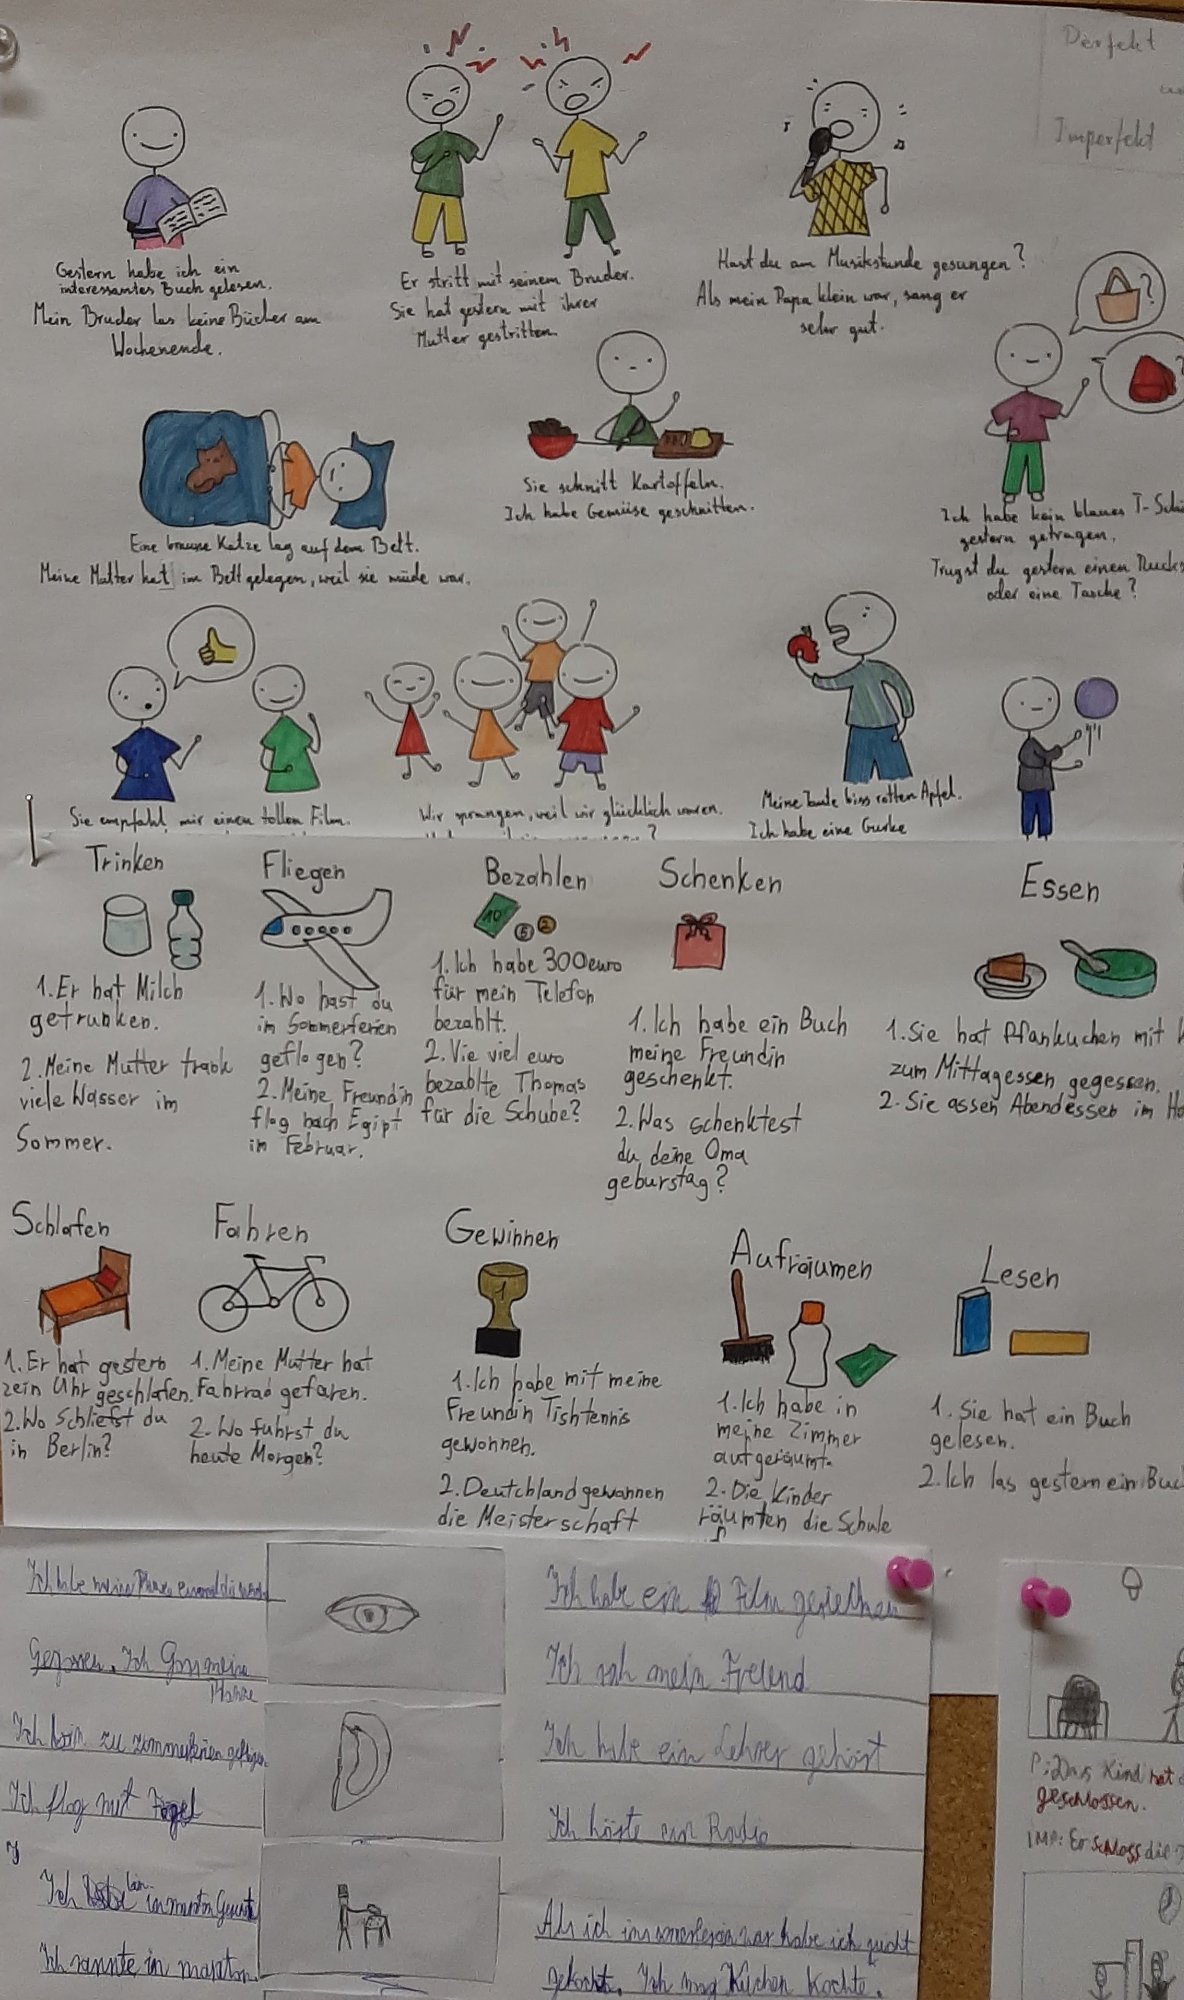 Perfekt
Imperfekt
Gestern habe ich ein
interessantes Buch gelesen.
Mein Bruder las keine Bücher am
Wochenende.
Er stritt mit seinem Bruder.
Sie hat gestern mit ihrer
Mutter gestritten.
Hast du am Musikstunde gesungen?
Als mein Papa klein war, sang er
sehr gut.
Eine braune Katze lag auf dem Bett.
Meine Mutter hat im Bett gelegen, weil sie müde war.
Sie schnitt Kartoffeln.
Ich habe Gemüse geschnitten.
?
Ich habe kein blaues T-
gestern getragen.
Trugst du gestern einen
oder eine Tasche?
Sie empfahl mir einen tollen Film.
Wir sprangen, weil wir glücklich waren.
Meine Tante biss rotten Apfel.
Ich habe eine Gurke
Trinken
1. Er hat Milch
getrunken.
2. Meine Mutter trank
viele Wasser im
Sommer.
Fliegen
1. Wo hast du
im Sommerferien
geflogen?
2. Meine Freundin
flog nach Egipt
in Februar.
Bezahlen
10 5 2
1. Ich habe 300 euro
für mein Telefon
bezahlt.
2. Vie viel euro
bezahlte Thomas
für die Schuhe?
Schenken
1. Ich habe ein Buch
meine Freundin
geschenkt.
2. Was schenktest
du deine Oma
geburstag?
Essen
1. Sie hat Pfankuchen mit
zum Mittagessen gegessen.
2. Sie assen Abendessen im
Schlafen
1. Er hat gestern
zein Uhr geschlafen.
2. Wo schliefst du
in Berlin?
Fahren
1. Meine Mutter hat
Fahrrad gefaren.
2. Wo fuhrst du
heute Morgen?
Gewinnen
1
1. Ich habe mit meine
Freundin Tishtennis
gewonnen.
2. Deutchland gewannen
die Meisterschaft
Aufräumen
1. Ich habe in
meine Zimmer
aufgeräumt.
2. Die Kinder
räumten die Schule
Lesen
1. Sie hat ein Buch
gelesen.
2. Ich las gestern ein
Ich habe meine
Ich
Ich bin zu
Ich flog mit
Ich bin in
Ich rannte in
Ich habe ein Film
Ich sah mein Freund
Ich habe ein Lehrer gehört
Ich hörte ein Radio
Als ich in war habe ich
gekocht. Ich mag Kuchen kochte.
P: Das Kind hat
geschlossen.
IMP: Er schloss die